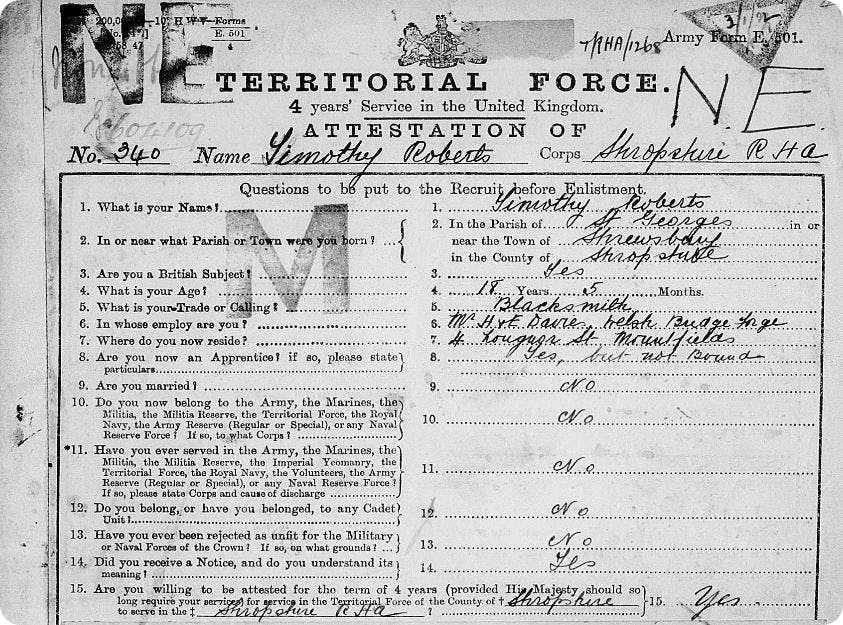 NE
200,0 10 H W V Forms
E. 501
4
T/RHA/1268
Army Form E. 501.
3/1/12
TERRITORIAL FORCE.
4 years' Service in the United Kingdom.
N.E.
ATTESTATION OF
No. 340 Name Timothy Roberts Corps Shropshire R H A
Questions to be put to the Recruit before Enlistment.
M
1. What is your Name? 1. Timothy Roberts
2. In or near what Parish or Town were you born? 2. In the Parish of St Georges in or
near the Town of Shrewsbury
in the County of Shropshire
3. Are you a British Subject? 3. Yes
4. What is your Age? 4. 18 Years 5 Months.
5. What is your Trade or Calling? 5. Blacksmith
6. In whose employ are you? 6. Mr H & E Davies, Welsh Bridge Forge
7. Where do you now reside? 7. 4 Longnor St. Mountfields
8. Are you now an Apprentice? if so, please state 8. Yes, but not Bound
particulars
9. Are you married? 9. No
10. Do you now belong to the Army, the Marines, the
Militia, the Militia Reserve, the Territorial Force, the Royal
Navy, the Army Reserve (Regular or Special), or any Naval
Reserve Force? If so, to what Corps? 10. No
*11. Have you ever served in the Army, the Marines, the
Militia, the Militia Reserve, the Imperial Yeomanry, the
Territorial Force, the Royal Navy, the Volunteers, the Army
Reserve (Regular or Special), or any Naval Reserve Force?
If so, please state Corps and cause of discharge 11. No
12. Do you belong, or have you belonged, to any Cadet
Unit? 12. No
13. Have you ever been rejected as unfit for the Military
or Naval Forces of the Crown? If so, on what grounds? 13. No
14. Did you receive a Notice, and do you understand its
meaning? 14. Yes
15. Are you willing to be attested for the term of 4 years (provided His Majesty should so
long require your services) for service in the Territorial Force of the County of † Shropshire 15. Yes
to serve in the ‡ Shropshire R H A ?